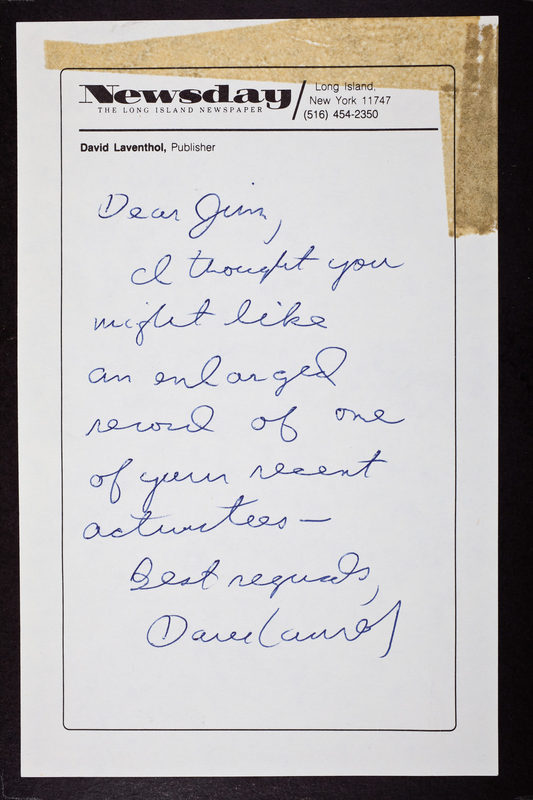 Newsday
THE LONG ISLAND NEWSPAPER
Long Island,
New York 11747
(516) 454-2350
David Laventhol, Publisher
Dear Jim,
I thought you
might like
an enlarged
record of one
of your recent
activities —
Best regards,
Dave Laventhol